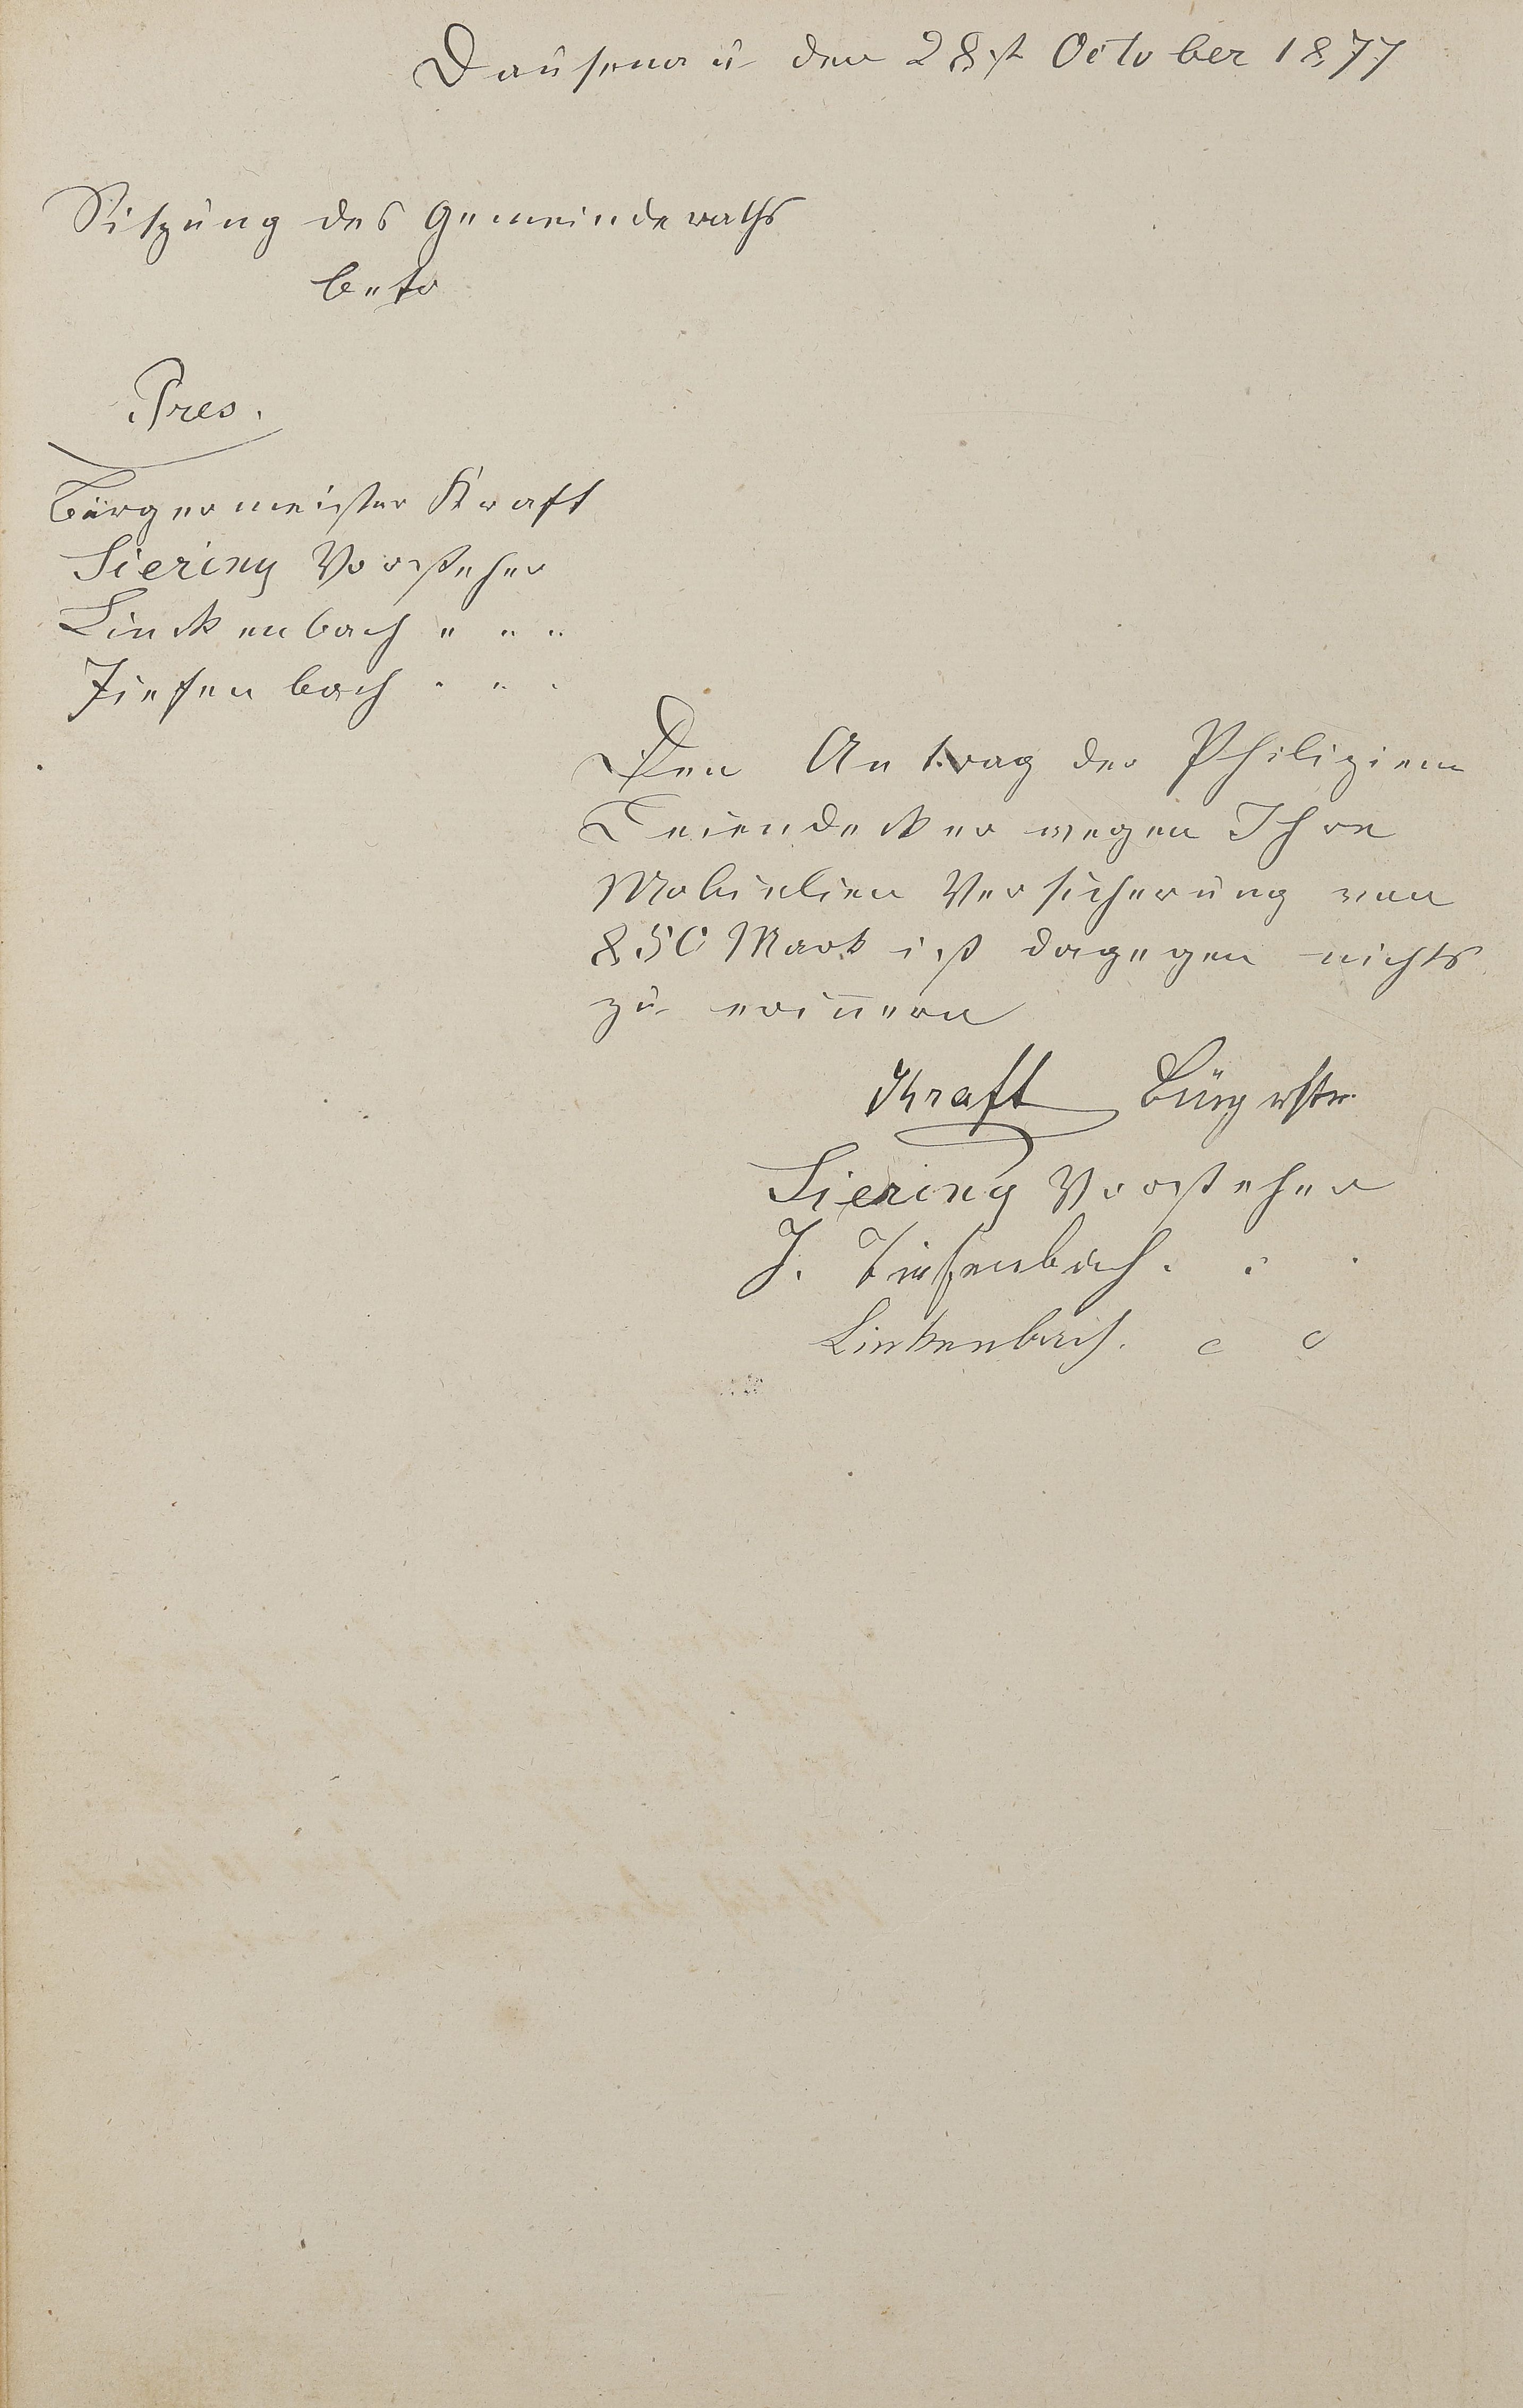 Dausenau den 28st October 1877
Sitzung des Gemeinderaths
betr
Pres.
Bürgermeister Kraft
Siering Vorsteher
Linckenbach " " "
Tiefenbach " " "
Den Antrag der
wegen Ihre
Mobielien Versicherung von
850 Mark ist dagegen nichts
zu erinnern
Kraft Bürgmstr.
Siering Vorsteher
J. Tiefenbach. " "
Linkenbach. " "